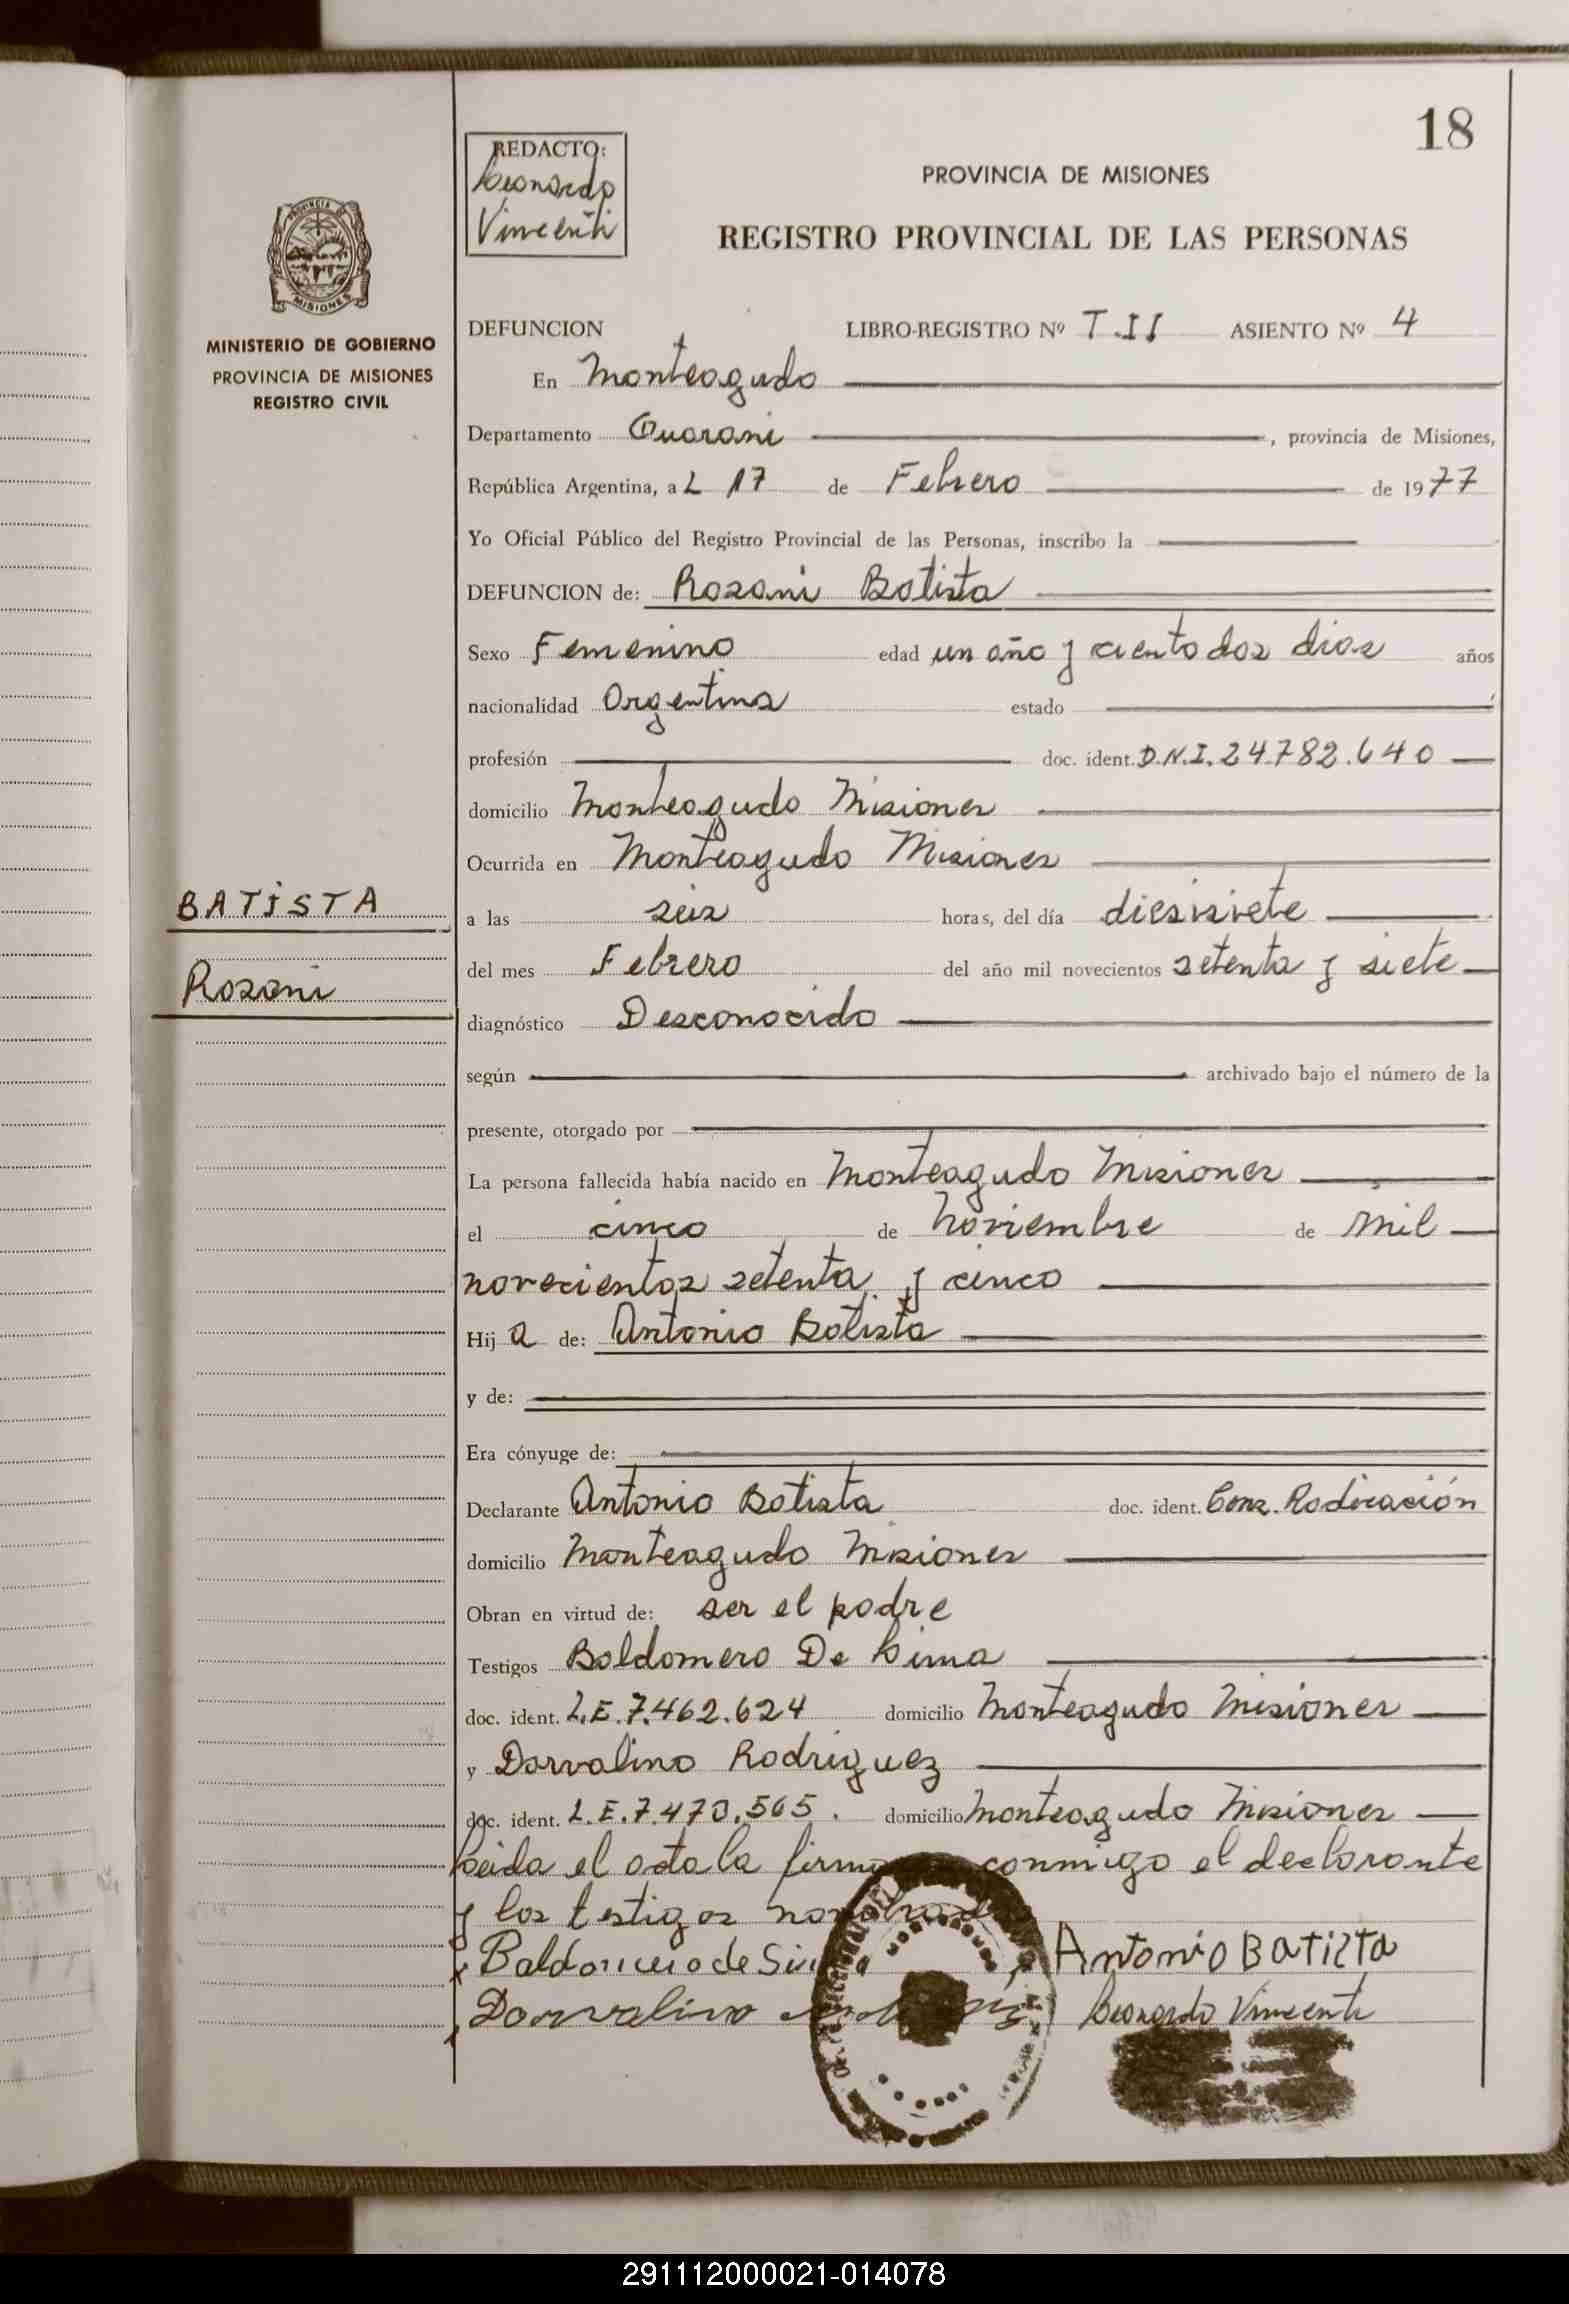 18
REDACTO:
Leonardo
Vincenti
PROVINCIA DE MISIONES
REGISTRO PROVINCIAL DE LAS PERSONAS
PROVINCIA DE
MISIONES
MINISTERIO DE GOBIERNO
PROVINCIA DE MISIONES
REGISTRO CIVIL
BATISTA
Rosani
DEFUNCION LIBRO-REGISTRO Nº T.II ASIENTO Nº 4
En Monteagudo
Departamento Guarani, provincia de Misiones,
República Argentina, a L 17 de Febrero de 1977
Yo Oficial Público del Registro Provincial de las Personas, inscribo la
DEFUNCION de: Rosani Batista
Sexo Femenino edad un año y ciento dos dias años
nacionalidad Argentina estado
profesión doc. ident. D.N.I. 24.782.640
domicilio Monteagudo Misiones
Ocurrida en Monteagudo Misiones
a las seis horas, del día diesisiete
del mes Febrero del año mil novecientos setenta y siete
diagnóstico Desconocido
según archivado bajo el número de la
presente, otorgado por
La persona fallecida había nacido en Monteagudo Misiones
el cinco de Noviembre de mil
novecientos setenta y cinco
Hij a de: Antonio Batista
y de:
Era cónyuge de:
Declarante Antonio Batista doc. ident. Cons. Radicación
domicilio Monteagudo Misiones
Obran en virtud de: ser el padre
Testigos Baldomero De Lima
doc. ident. L.E. 7.462.624 domicilio Monteagudo Misiones
y Dorvalino Rodriguez
doc. ident. L.E. 7.473.565. domicilio Monteagudo Misiones
Leida el acta la conmigo el declarante
y los testigos
Baldomero de Antonio BatiSta
Dorvalino Leonardo Vincenti
291112000021-014078